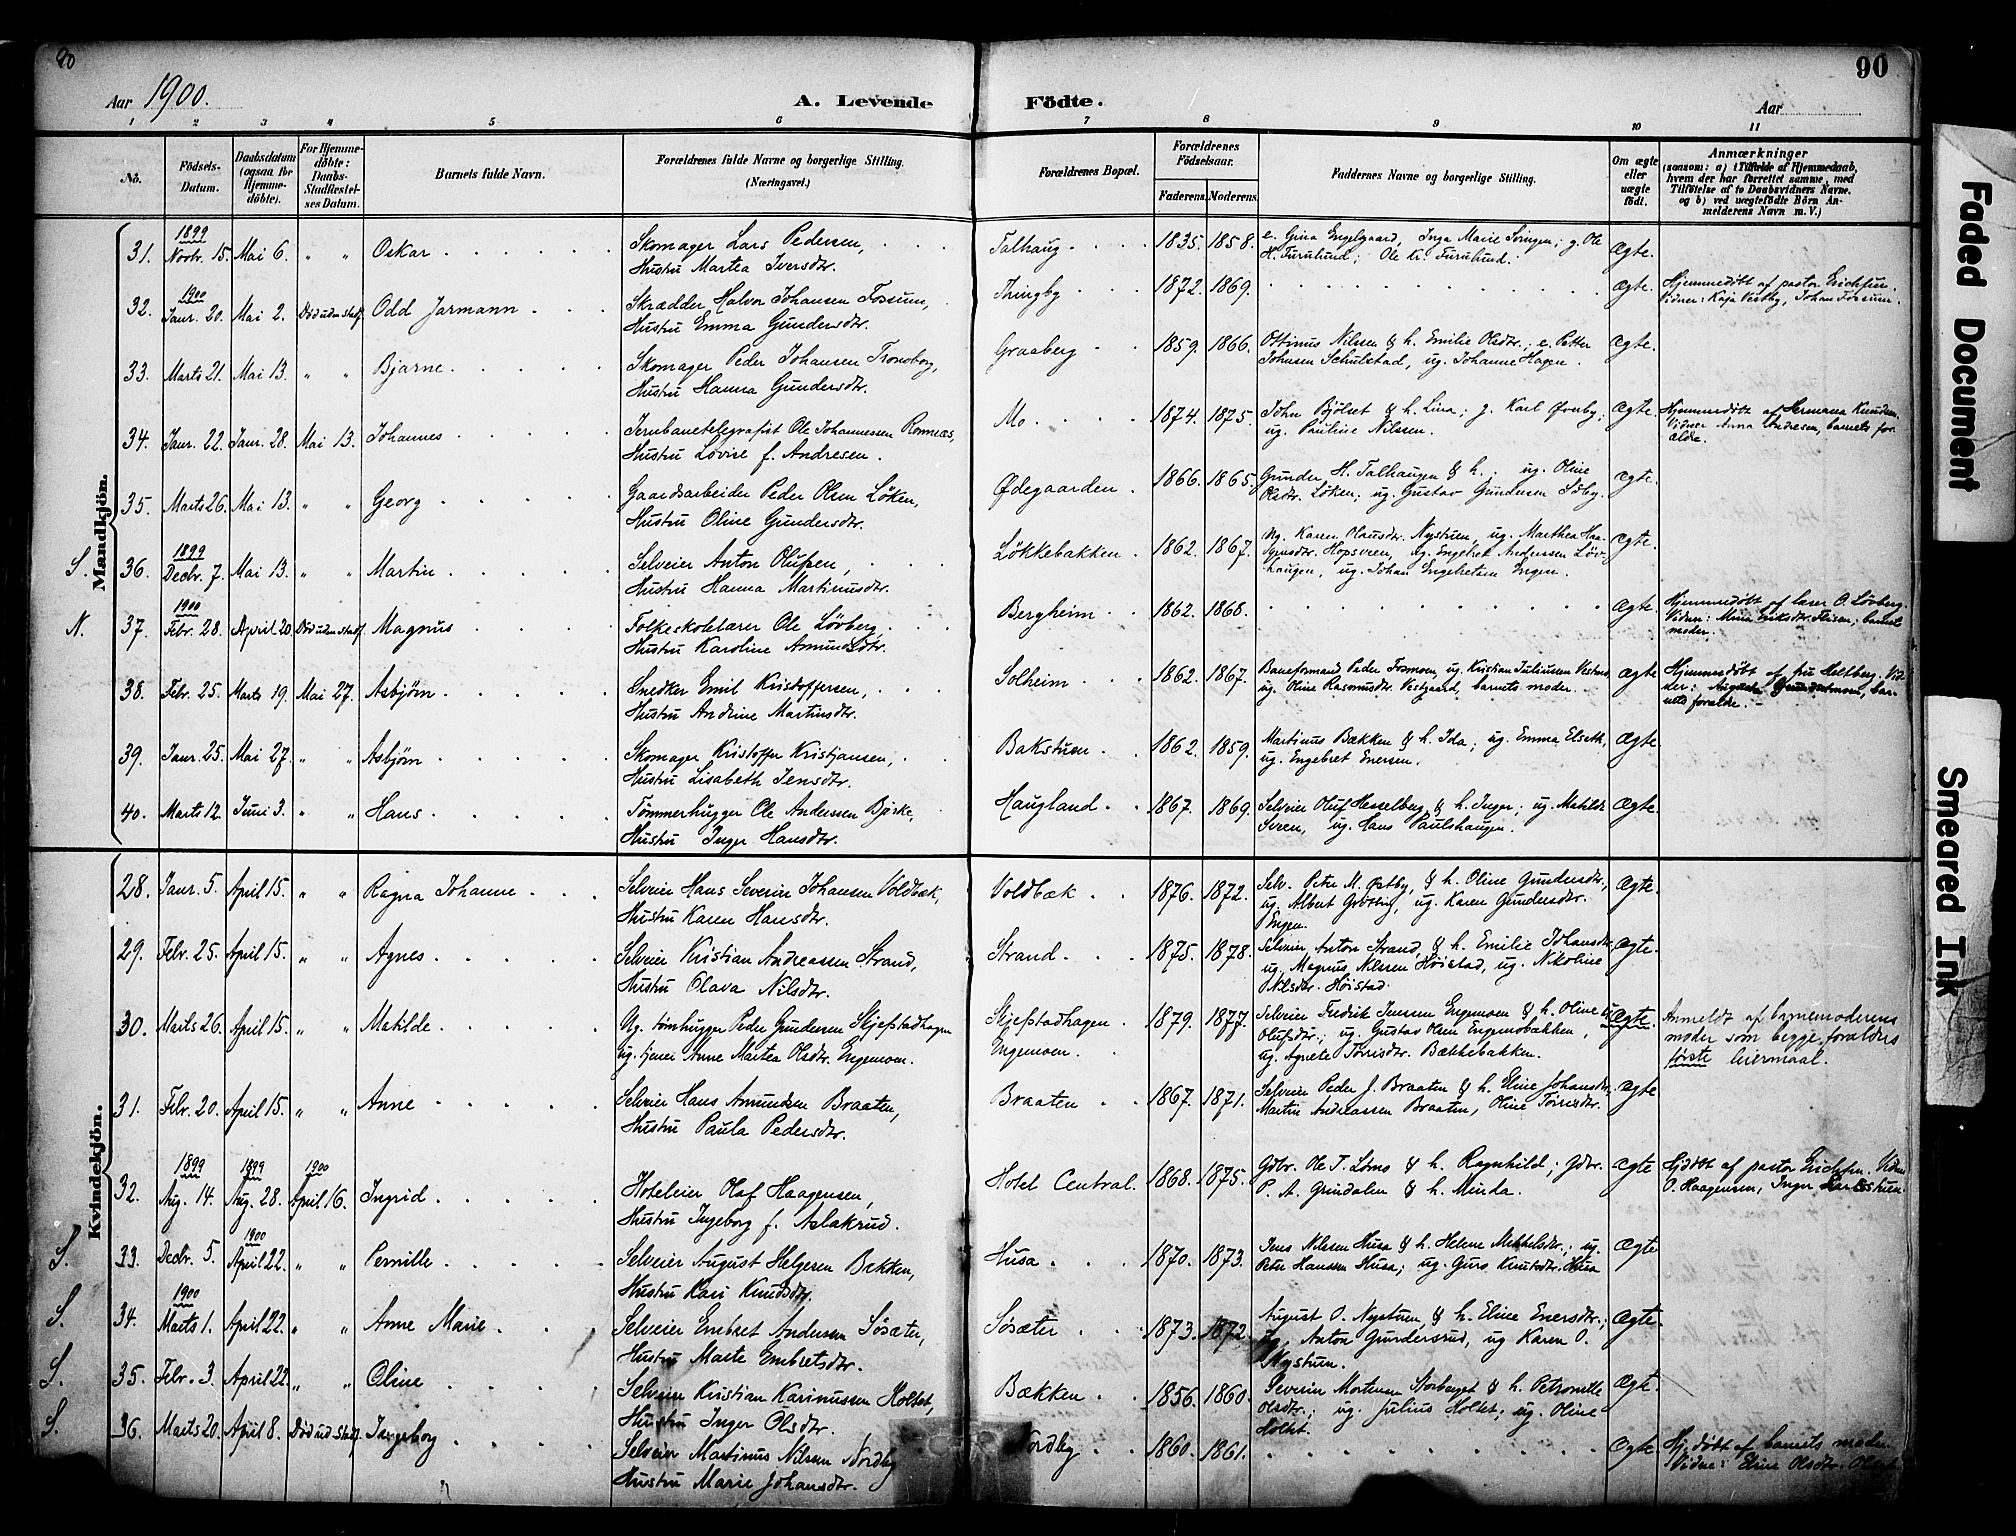 90
90
Aar 1900.
A. Levende Födte.
Aar
1 2 3 4 5 6 7 8 9 10 11
No.
Födsels-Datum.
Daabsdatum (ogsaa for Hjemmedöbte).
For Hjemmedöbte: Daabs-Stadfæstelses Datum.
Barnets fulde Navn.
Forældrenes fulde Navne og borgerlige Stilling. (Næringsvei.)
Forældrenes Bopæl.
Forældrenes Födselsaar.
Faderens. Moderens.
Faddernes Navne og borgerlige Stilling.
Om ægte eller uægte födt.
Anmærkninger
(saasom: a) i Tilfælde af Hjemmedaab, hvem der har forrettet samme, med Tilföielse af to Daabsvidners Navne. og b) ved uægtefödte Börn Anmelderens Navn m. V.)
Mandkjön.
31. 1899 Novbr. 15. Mai 6. " " Oskar
Skomager Lars Pedersen,
Hustru Martea Iversdtr.
Talhaug 1835. 1858.
e. Gina Engelgaard, Inga Marie Soingen; g. Ole
H. Furulund; Ole Kr. Furulund.
Ægte.
32. 1900 Janr. 20. Mai 2. Død uden stadf. Odd Jarmann
Skrædder Halvor Johansen Fossum,
Hustru Emma Gundersdtr.
Thingby 1872. 1869. Ægte.
Hjemmedøbt af pastor Erichsen.
Vidner: Kaja Vestby, Johan Fossum.
33. Marts 21. Mai 13. " " Bjarne
Skomager Peder Johansen Tronsborg,
Hustru Hanna Gundersdtr.
Graaberg 1859. 1866.
Ottinus Nilsen & h. Emilie Olsdtr.; e. Petter
Johnsen Schulstad, ug. Johanne Hagen.
Ægte.
34. Janr. 22. Janr. 28. Mai 13. Johannes
Jernbanetelegrafist Ole Johannessen Romnæs,
Hustru Lovise f. Andresen.
Mo 1874. 1875.
John Bjølset & h. Lina; g. Karl Øvreby;
ug. Pauline Nilssen.
Ægte.
Hjemmedøbt af Hermana Knudsen.
Vidner Anna Andresen, barnets for
ældre.
35. Marts 26. Mai 13. " " Georg
Gaardsarbeider Peder Olsen Løken,
Hustru Oline Gundersdtr.
Ødegaarden 1866. 1865.
Gunder H. Talhaugen & h.; ug. Oline
Olsdtr. Løken; ug. Gustav Gundersen Sæby.
Ægte.
S. 36. 1899 Decbr. 7. Mai 13. " " Martin
Selveier Anton Olufsen,
Hustru Hanna Martinusdtr.
Løkkebakken 1862. 1867.
Ug. Karen Hansdtr. Nystuen, ug. Marthea Haa-
gensdtr. Hopsveen, ug. Engebret Anderssen Løv-
haugen, ug. Johan Engebretsen Engen.
Ægte.
N. 37. 1900 Febr. 28. April 20. Død uden stadf. Magnus
Folkeskolelærer Ole Løvberg,
Hustru Karoline Amundsdtr.
Bergheim 1862. 1868. Ægte.
Hjemmedøbt af lærer O. Løvberg.
Vidner: Mina Eriksdtr. Flisen; barnets
moder.
38. Febr. 25. Marts 19. Mai 27. Asbjørn
Snedker Emil Kristoffersen,
Hustru Andrine Martinsdtr.
Solheim 1862. 1867.
Baneformand Peder Fosmoen, ug. Kristian Juliussen
ug. Oline Rasmusdtr. Vestgaard, barnets moder.
Ægte
Hjemmedøbt af fru Helberg. Vid-
ner: bar-
nets forældre.
39. Janr. 25. Mai 27. " " Asbjørn
Skomager Kristoffer Kristjansen,
Hustru Lisabeth Jensdtr.
Bakstuen 1862. 1859.
Martinus Bækken & h. Ida; ug. Emma Elseth,
ug. Engebret Enersen.
Ægte.
40. Marts 12. Juni 3. " " Hans
Tømmerhugger Ole Anderssen Bjørke,
Hustru Inger Hansdtr.
Haugland 1867. 1869.
Selveier Oluf Hesselberg, & h. Inger; ug. Matilde
Sveen, ug. Hans Paulshaugen.
Ægte.
Kvindekjön.
28. Janr. 5. April 15. " " Ragna Johanne
Selveier Hans Severin Johansen Voldbæk,
Hustru Karen Hansdtr.
Voldbæk 1876. 1872.
Selv. Peter M. Østby, & h. Oline Gundersdtr.,
ug. Albert Grøtting, ug. Karen Gundersdtr.
Engen.
Ægte.
29. Febr. 25. April 15. " " Agnes
Selveier Kristian Andreassen Strand,
Hustru Olava Nilsdtr.
Strand 1875. 1878.
Selveier Anton Strand, & h. Emilie Johansdtr.
ug. Magnus Nilssen Høistad, ug. Nikoline
Nilsdtr. Høistad.
Ægte.
30. Marts 26. April 15. " " Matilde
Ug. tømhugger Peder Gundersen Skjefstadhagen
ug. tjener Anne Martea Olsdtr. Engemoen.
Skjefstadhagen
Engemoen. 1879. 1877.
Selveier Fredrik Jenssen Engemoen & h. Oline
Olufsdtr.; ug. Gustav Olsen Engemobakken,
ug. Agnete Torrisdtr. Bækkebakken.
uægte.
Anmeldt af barnemoderens
moder som begge forældres
første leiermaal.
31. Febr. 20. April 15. " " Anne
Selveier Hans Amundsen Braaten,
Hustru Paula Pedersdtr.
Braaten 1867. 1871.
Selveier Peder J. Braaten & h. Eline Johansdtr.
Martin Andreassen Braaten, Oline Torrisdtr.
Ægte
32. 1899 Aug. 14. 1899 Aug. 28. 1900 April 16. Ingrid
Hoteleier Olaf Haagensen,
Hustru Ingeborg f. Aslakrud.
Hotel Central. 1868. 1875.
Gdbr. Ole T. Loms & h. Ragnhild; gdbr.
P. A. Grindalen & h. Minda.
Ægte
Hjdøbt af pastor Erichsen. Vidn
O. Haagensen, Inger
S. 33. Decbr. 5. 1900 April 22. " " Pernille
Selveier August Helgesen Bakken,
Hustru Kari Knudsdtr.
Husa 1870. 1873.
Jens Nilssen Husa & h. Helene Mikkelsdtr.; ug.
Peter Hanssen Husa; ug. Guro Knutsdtr. Husa
Ægte
S. 34. 1900 Marts 1. April 22. " " Anne Marie
Selveier Embret Andersen Søsæter,
Hustru Marte Embretsdtr.
Søsæter 1873. 1872.
August O. Nystuen, & h. Eline Enersdtr.;
ug. Anton Gundersrud, ug Karen O.
Nystuen.
Ægte.
S. 35. Febr. 3. April 22. " " Oline
Selveier Kristian Karinussen Holtet,
Hustru Inger Olsdtr.
Bækken 1856. 1860.
Severin Mortensen Storberget & h. Petronille
Olsdtr.; ug. Julius Holtet; ug. Oline
Holtet.
Ægte.
S. 36. Marts 20. April 8. Død ud. Stadf. Ingeborg
Selveier Martinus Nilsen Nordby
Hustru Marie Johansdtr.
Nordby 1860. 1861. Ægte.
Hj.døbt af barnets moder.
Vidner: Eline Olsdtr.
Faded Document
Smeared Ink